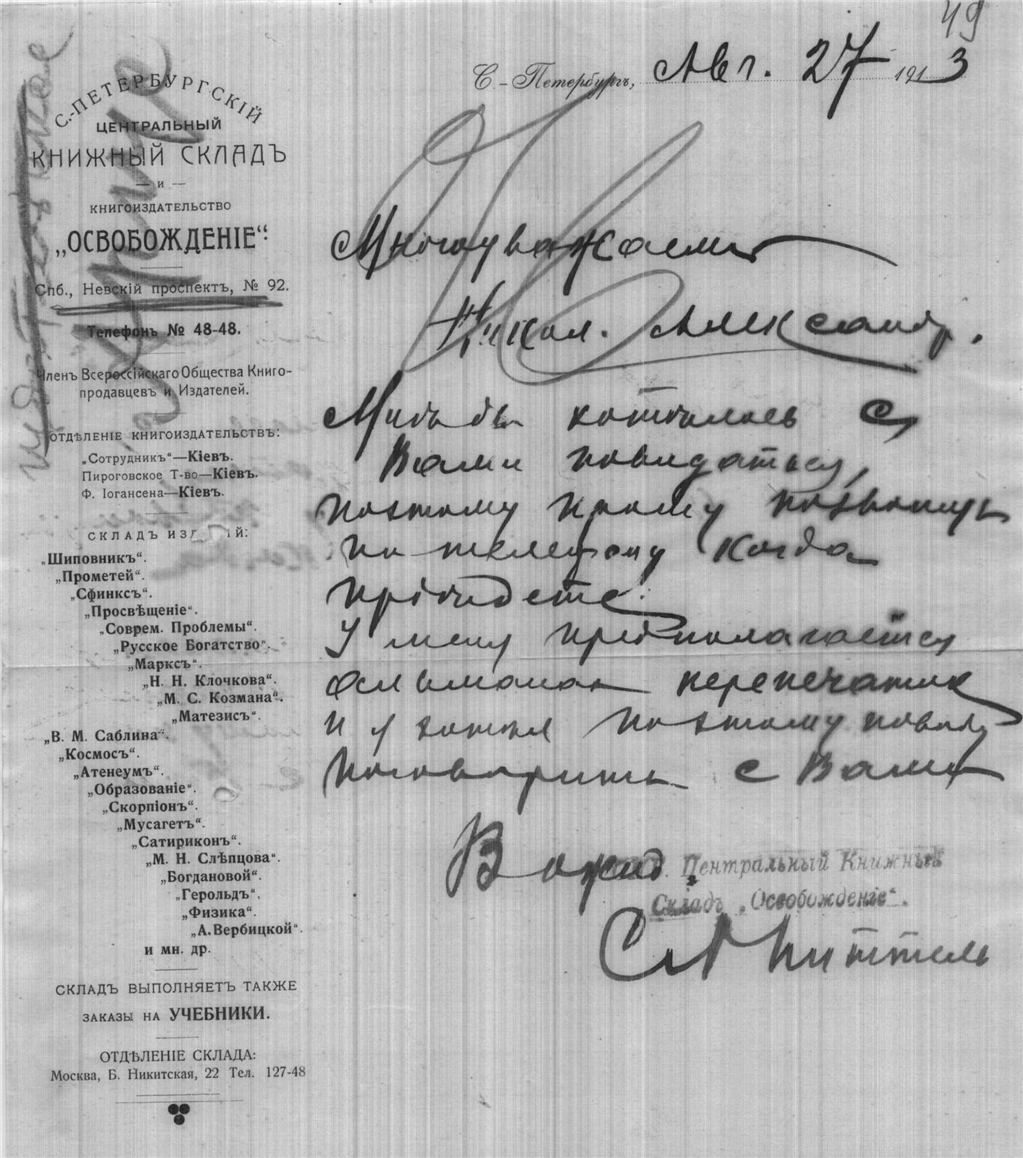 49
С.-Петербургъ, Авг. 27 1913
С.-ПЕТЕРБУРГСКІЙ
ЦЕНТРАЛЬНЫЙ
КНИЖНЫЙ СКЛАДЪ
— и —
КНИГОИЗДАТЕЛЬСТВО
„ОСВОБОЖДЕНІЕ“
Спб., Невскій проспектъ, № 92.
Телефонъ № 48-48.
Членъ Всероссійскаго Общества Книго-
продавцевъ и Издателей.
ОТДѢЛЕНІЕ КНИГОИЗДАТЕЛЬСТВЪ:
„Сотрудникъ“—Кіевъ.
Пироговское Т-во—Кіевъ.
Ф. Іогансена—Кіевъ.
СКЛАДЪ ИЗДАНІЙ:
„Шиповникъ“.
„Прометей“.
„Сфинксъ“.
„Просвѣщеніе“.
„Соврем. Проблемы“.
„Русское Богатство“.
„Марксъ“.
„Н. Н. Клочкова“.
„М. С. Козмана“.
„Матезисъ“.
„В. М. Саблина“.
„Космосъ“.
„Атенеумъ“.
„Образованіе“.
„Скорпіонъ“.
„Мусагетъ“.
„Сатириконъ“.
„М. Н. Слѣпцова“.
„Богдановой“.
„Герольдъ“.
„Физика“.
„А. Вербицкой“.
и мн. др.
СКЛАДЪ ВЫПОЛНЯЕТЪ ТАКЖЕ
ЗАКАЗЫ НА УЧЕБНИКИ.
ОТДѢЛЕНІЕ СКЛАДА:
Москва, Б. Никитская, 22 Тел. 127-48
Многоуважаемый
Никол. Александр.
хотѣлось с
Вами повидаться,
поэтому прошу позвонить
по телефону когда
пріидете.
У меня предполагается
альманах перепечаток
и я хотел по этому поводу
поговорить с Вами
Центральный Книжный
Складъ „Освобожденіе“.